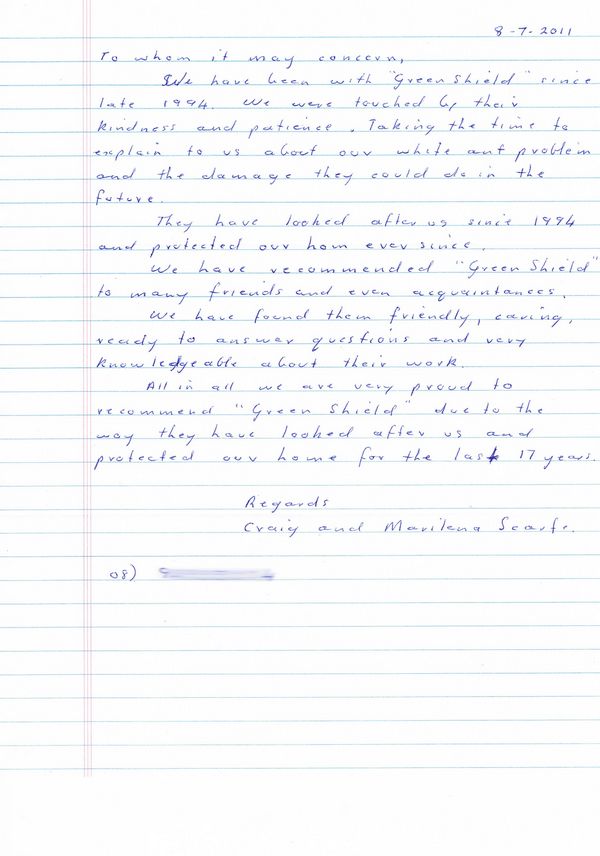 8-7-2011
To whom it may concern,
We have been with "Green Shield" since
late 1994. We were touched by their
kindness and patience. Taking the time to
explain to us about our white ant problem
and the damage they could do in the
future.
They have looked after us since 1994
and protected our hom ever since.
We have recommended "Green Shield"
to many friends and even acquaintances.
We have found them friendly, caring,
ready to answer questions and very
knowledgeable about their work.
All in all we are very proud to
recommend "Green Shield" due to the
way they have looked after us and
protected our home for the last 17 years.
Regards
Craig and Marilena Scarfe.
08)